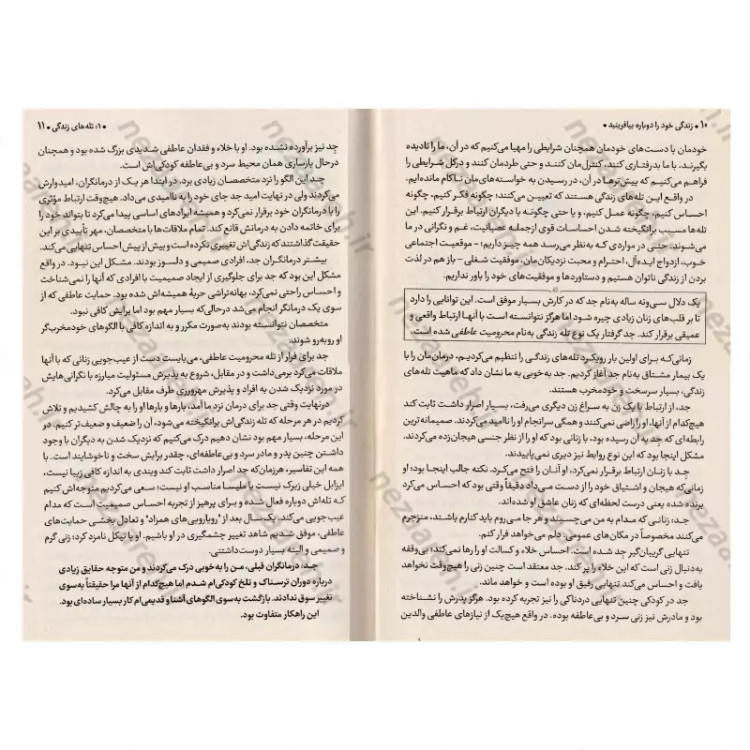 ۱۰ • زندگی خود را دوباره بیافرینید •
خودمان با دست‌های خودمان همچنان شرایطی را مهیا می‌کنیم که در آن، ما را نادیده
بگیرند، با ما بدرفتاری کنند، کنترل‌مان کنند و حتی طردمان کنند و درکل شرایطی را
فراهم می‌کنیم که پیش‌ترها در آن، در رسیدن به خواسته‌های‌مان ناکام مانده‌ایم.
در واقع این تله‌های زندگی هستند که تعیین می‌کنند؛ چگونه فکر کنیم، چگونه
احساس کنیم، چگونه عمل کنیم، و یا حتی چگونه با دیگران ارتباط برقرار کنیم. این
تله‌ها مسبب برانگیخته شدن احساسات قوی ازجمله عصبانیت، غم و نگرانی در ما
می‌شوند. حتی در مواردی که به‌نظر می‌رسد همه چیز داریم؛ - موقعیت اجتماعی
خوب، ازدواج ایده‌آل، احترام و محبت نزدیکان‌مان، موفقیت شغلی - باز هم در لذت
بردن از زندگی ناتوان هستیم و دستاوردها و موفقیت‌های خود را باور نداریم.
یک دلال سی‌ونه ساله به‌نام جد که در کارش بسیار موفق است. این توانایی را دارد
تا بر قلب‌های زنان زیادی چیره شود اما هرگز نتوانسته است با آنها ارتباط واقعی و
عمیقی برقرار کند. جد گرفتار یک نوع تله زندگی به‌نام محرومیت عاطفی شده است.
زمانی‌که برای اولین بار رویکرد تله‌های زندگی را تنظیم می‌کردیم، درمان‌مان را با
یک بیمار مشتاق به‌نام جد آغاز کردیم. جد به‌خوبی به ما نشان داد که ماهیت تله‌های
زندگی، بسیار سرسخت و خودمخرب هستند.
جد، از ارتباط با یک زن به سراغ زن دیگری می‌رفت، بسیار اصرار داشت ثابت کند
هیچ‌کدام از آنها، او را راضی نمی‌کنند و همگی سرانجام او را ناامید می‌کردند. صمیمانه‌ترین
رابطه‌ای که جد به آن رسیده بود، با زنانی بود که او را از نظر جنسی هیجان‌زده می‌کردند.
مشکل اینجا بود که این نوع روابط نیز دیری نمی‌پاییدند.
جد با زنان ارتباط برقرار نمی‌کرد، او آنان را فتح می‌کرد. نکته جالب اینجا بود؛ او
زمانی‌که هیجان و اشتیاق خود را از دست می‌داد دقیقاً وقتی بود که احساس می‌کرد
برنده شده یعنی درست لحظه‌ای که زنان عاشق او شده‌اند.
جد: زنانی که مدام به من می‌چسبند و هر جا می‌روم باید کنارم باشند، منزجرم
می‌کنند مخصوصاً در مکان‌های عمومی. دلم می‌خواهد فرار کنم.
تنهایی گریبان‌گیر جد شده است. احساس خلاء و کسالت او را رها نمی‌کند؛ بی‌وقفه
به‌دنبال زنی است که این خلاء را پر کند. جد معتقد است چنین زنی را هیچ‌وقت نخواهد
یافت و احساس می‌کند تنهایی رفیق او بوده است و خواهد ماند.
جد در کودکی چنین تنهایی دردناکی را نیز تجربه کرده بود. هرگز پدرش را نشناخته
بود و مادرش نیز زنی سرد و بی‌عاطفه بوده. در واقع هیچ‌یک از نیازهای عاطفی والدین
۱: تله‌های زندگی • ۱۱
جد نیز برآورده نشده بود. او با خلاء و فقدان عاطفی شدیدی بزرگ شده بود و همچنان
درحال بازسازی همان محیط سرد و بی‌عاطفه کودکی‌اش است.
جد این الگو را نزد متخصصان زیادی برد. در ابتدا هر یک از درمانگران، امیدوارش
می‌کردند ولی در نهایت امید جد جای خود را به ناامیدی می‌داد. هیچ‌وقت ارتباط مؤثری
را با درمانگران خود برقرار نمی‌کرد و همیشه ایرادهای اساسی پیدا می‌کرد تا بتواند خود را
برای خاتمه دادن به درمانش قانع کند. تمام ملاقات‌ها با متخصصان، مهر تأییدی بر این
حقیقت گذاشتند که زندگی‌اش تغییری نکرده است و بیش از پیش احساس تنهایی می‌کند.
بیشتر درمانگران جد، افرادی صمیمی و دلسوز بودند. مشکل این نبود. در واقع
مشکل این بود که جد برای جلوگیری از ایجاد صمیمیت با افرادی که آنها را نمی‌شناخت
و احساس راحتی نمی‌کرد، بهانه‌تراشی حربهٔ همیشه‌اش شده بود. حمایت عاطفی که از
سوی یک درمانگر انجام می‌شد درحالی‌که بسیار مهم بود اما برایش کافی نبود.
متخصصان نتوانسته بودند به‌صورت مکرر و به اندازه کافی با الگوهای خودمخرب‌گر
او روبه‌رو شوند.
جد برای فرار از تله محرومیت عاطفی، می‌بایست دست از عیب‌جویی زنانی که با آنها
ملاقات می‌کرد برمی‌داشت و در مقابل، شروع به پذیرش مسئولیت مبارزه با نگرانی‌هایش
در مورد نزدیک شدن به افراد و پذیرش مهرورزی طرف مقابل می‌کرد.
درنهایت وقتی جد برای درمان نزد ما آمد، بارها و بارها و او را به چالش کشیدیم و تلاش
کردیم در هر مرحله که تله زندگی‌اش برانگیخته می‌شود، آن را ضعیف و ضعیف‌تر کنیم. در
این مرحله، بسیار مهم بود نشان دهیم درک می‌کنیم که نزدیک شدن به دیگران با وجود
داشتن چنین پدر و مادر سرد و بی‌عاطفه‌ای، چقدر برایش سخت و ناخوشایند است. با
همه این تفاسیر، هرزمان‌که جد اصرار داشت ثابت کند ویندی به اندازه کافی زیبا نیست،
ایزابل خیلی زیرک نیست یا ملیسا مناسب او نیست؛ سعی می‌کردیم متوجه‌اش کنیم
که تله‌اش دوباره فعال شده و برای پرهیز از تجربه احساس صمیمیت است که مدام
عیب‌جویی می‌کند. یک سال بعد از "رویارویی‌های همراه" و تعادل بخشی حمایت‌های
عاطفی، موفق شدیم شاهد تغییر چشمگیری در او باشیم. او با نیکل نامزد کرد؛ زنی گرم
و صمیمی و البته بسیار دوست‌داشتنی.
جد: درمانگران قبلی، من را به خوبی درک می‌کردند و من متوجه حقایق زیادی
درباره دوران ترسناک و تلخ کودکی‌ام شدم اما هیچ‌کدام از آنها مرا حقیقتاً به‌سوی
تغییر سوق ندادند. بازگشت به‌سوی الگوهای آشنا و قدیمی‌ام کار بسیار ساده‌ای بود.
این راهکار متفاوت بود.
nezaneh.ir